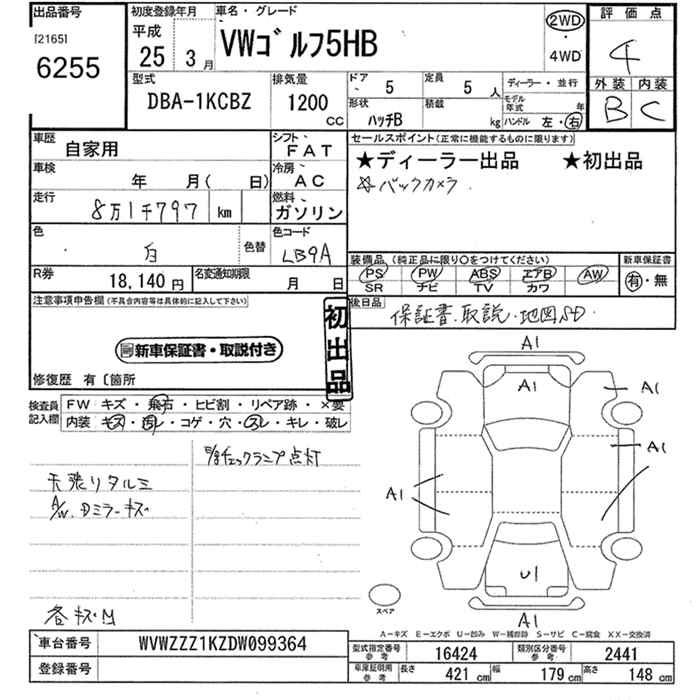 出品番号 初度登録年月 車名・グレード 2WD 評価点
[2165] 平成
6255 25年 3月 VWゴルフ5HB 4WD 4
型式 排気量 ドア 5 定員 5人 ディーラー・並行 外装 内装
DBA-1KCBZ 1200 CC 形状 ハッチB 積載 kg モデル年式 年 B C
ハンドル 左・右
車歴 自家用 シフト FAT セールスポイント(正常に機能するものに限ります)
車検 年 月( 日) 冷房 AC ★ディーラー出品 ★初出品
走行 8万1千797 km 燃料 ガソリン ☆バックカメラ
色 白 色替 色コード LB9A 装備品(純正品に限り○をつけてください) 新車保証書
PS PW ABS エアB AW 有・無
R券 18,140円 名変通知期限 月 日 SR ナビ TV カワ
注意事項申告欄(不具合内容等は具体的に記入して下さい) 後日品
初出品 保証書.取説.地図SD
新車保証書・取説付き
修復歴 有〔箇所
検査員記入欄 FW キズ・飛石・ヒビ割・リペア跡・×要
内装 キズ・汚レ・コゲ・穴・スレ・キレ・破レ
チェックランプ点灯
天張りタルミ
A/W.Dミラーキズ
各キズ
A1
A1 A1
A1
A1
U1
スペア
A1
A-キズ E-エクボ U-凹み W-補修跡 S-サビ C-腐食 XX-交換済
車台番号 WVWZZZ1KZDW099364
登録番号
型式指定番号 参考 16424 類別区分番号 参考 2441
車庫証明用 参考 長さ 421 cm 幅 179 cm 高さ 148 cm